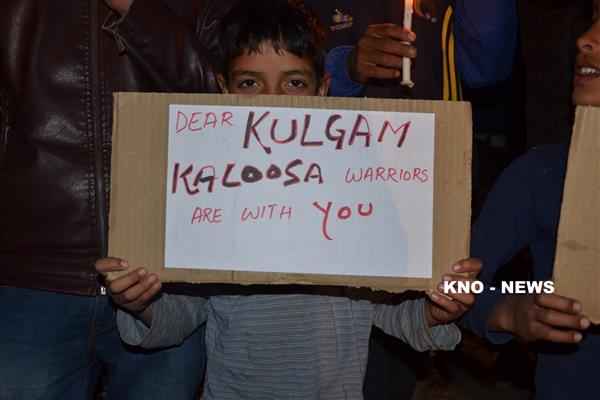 DEAR KULGAM
KALOOSA WARRIORS
ARE WITH YOU
KNO - NEWS